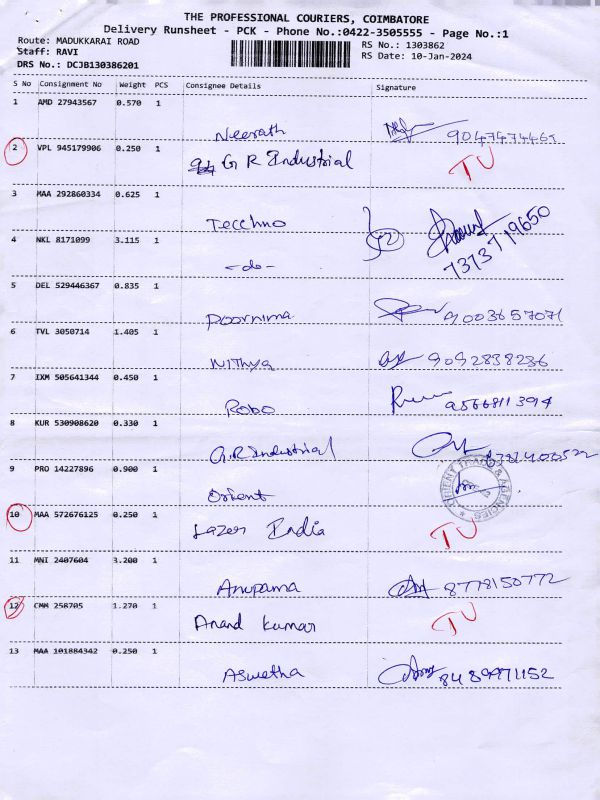 THE PROFESSIONAL COURIERS, COIMBATORE
Delivery Runsheet - PCK - Phone No.:0422-3505555 - Page No.:1
Route: MADUKKARAI ROAD
Staff: RAVI
DRS No.: DCJB130386201
RS No.: 1303862
RS Date: 10-Jan-2024
S No Consignment No Weight PCS Consignee Details Signature
1 AMD 27943567 0.570 1
Neerath
2 VPL 945179906 0.250 1 G R Industrial TU
3 MAA 292860334 0.625 1
Tecchno 7373719650
4 NKL 8171099 3.115 1
-do-
5 DEL 529446367 0.835 1
Poornima 9003657071
6 TVL 3050714 1.405 1
Nithya 9092838236
7 IXM 505641344 0.450 1
Robo 9566811394
8 KUR 530908620 0.330 1
G.R Industrial
9 PRO 14227896 0.900 1
Orient
ORIENT TRADE AGENCIES
10 MAA 572676125 0.250 1 Lazer India TU
11 MNI 2407604 3.200 1
Anupama 8778150772
12 CMM 258705 1.270 1 Anand Kumar TU
13 MAA 101884342 0.250 1
Aswetha 8489971152